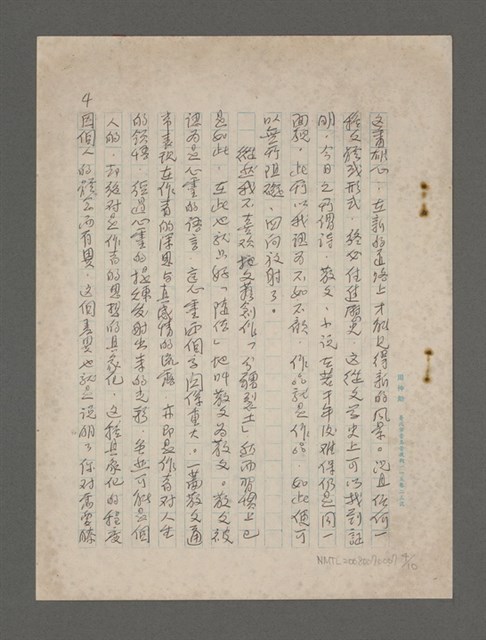 這番雄心，在新的道路上才能見得新的風景。況且任何一
種文體或形式，終必住進歷史，這從文學史上可以找到証
明，今日之所謂詩、散文、小說在若干年後難保仍是同一
面貌。此所以我認為不如不歸，作品就是作品，如此便可
以無所阻礙，四向放射了。
縱然我不喜歡把文藝創作「分疆裂土」，然而習慣上已
是如此，在此也就只好「隨俗」地叫散文為散文。散文被
認為是心靈的語言，這心靈兩個字關係重大。一篇散文通
常表現在作者的深思與真感情的流露，亦即是作者對人生
的領悟，經過心靈的提煉發射出來的光彩，它並可能是個
人的，却絕對是作者的思想的具象化，這種具象化的程度
因個人的體會而有異，這個差異也就是說明了你對
4
NMTL20080070007 4/10